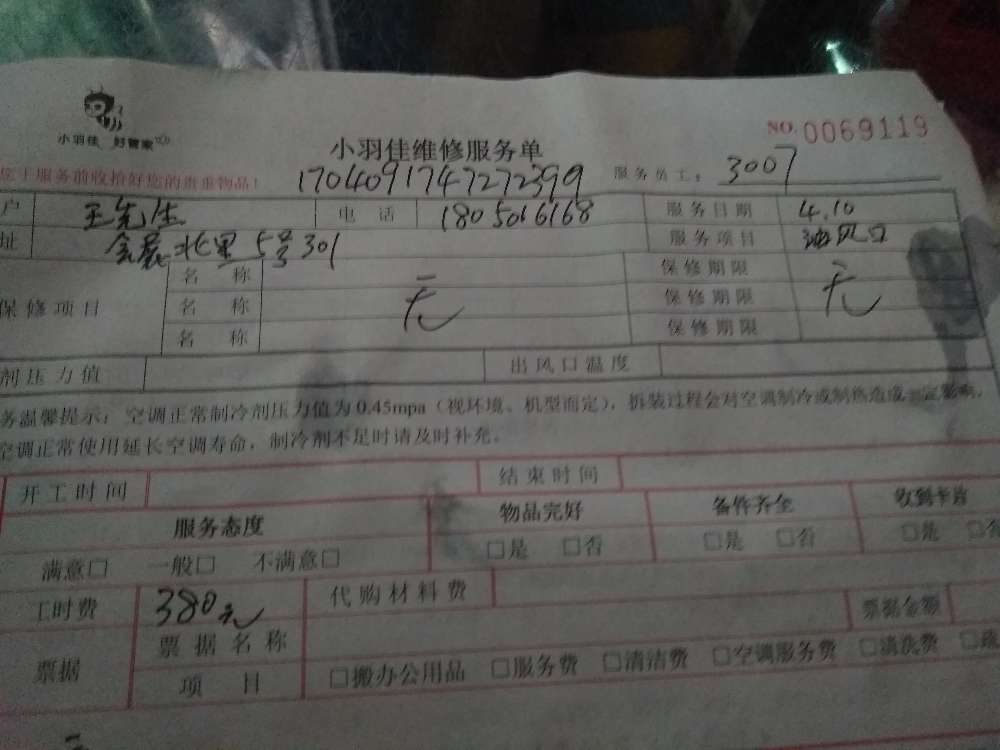 小羽佳 好管家
NO. 0069119
小羽佳维修服务单
您于服务前收拾好您的贵重物品!
1704091747272399
服务员工: 3007
户 王先生 电 话 1805016168 服务日期 4.10
址 会展北里5号301 服务项目 油风口
保修项目 名 称 无 保修期限 无
名 称 保修期限
名 称 保修期限
剂压力值 出风口温度
务温馨提示: 空调正常制冷剂压力值为0.45mpa(视环境、机型而定), 拆装过程会对空调制冷或制热造成一定影响,
空调正常使用延长空调寿命, 制冷剂不足时请及时补充。
开工时间 结束时间
服务态度 物品完好 备件齐全 收到卡片
满意□ 一般□ 不满意□ □是 □否 □是 □否 □是 □否
工时费 380元 代购材料费 票据金额
票据 票据名称
项 目 □搬办公用品 □服务费 □清洁费 □空调服务费 □清洗费 □疏